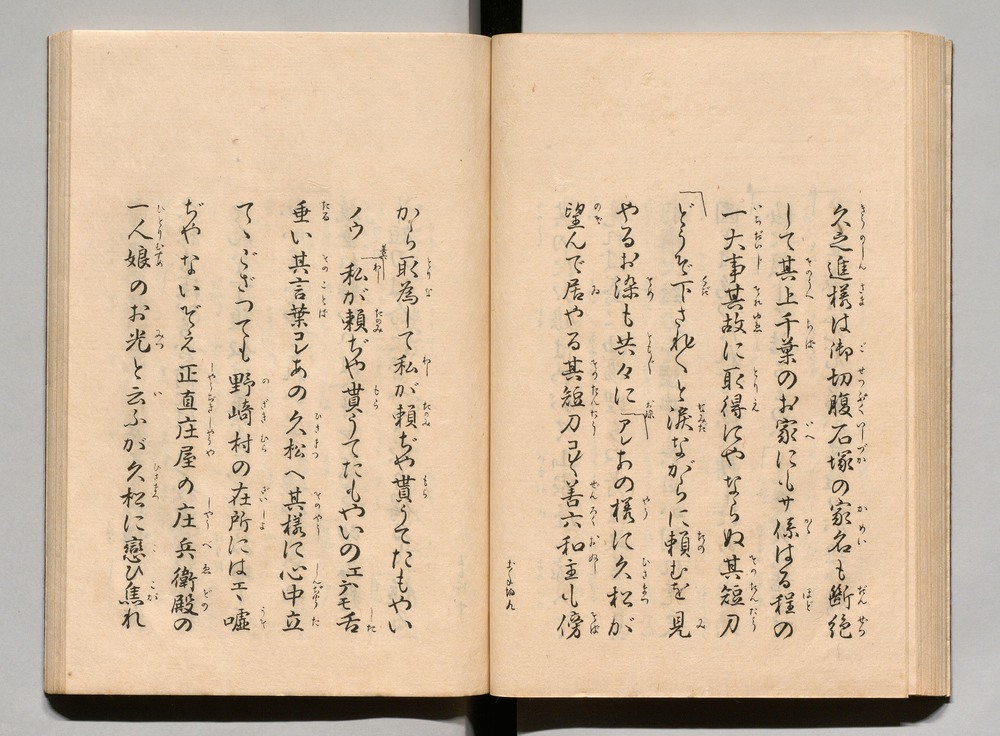 久之進様は御切腹石塚の家名も断絶
して其上千葉のお家にもサ係はる程の
一大事其故に取得にやならぬ其短刀
どうぞ下されと涙ながらに頼むを見
やるお染も共々にアレあの様に久松が
望んで居やる其短刀コレ善六和主も傍
から取為して私が頼ぢや貰うてたもやい
ノウ私が頼ぢや貰うてたもやいのエデモ舌
垂い其言葉コレあの久松へ其様に心中立
てゝござつても野崎村の在所にはエヽ嘘
ぢやないぞえ正直庄屋の庄兵衛殿の
一人娘のお光と云ふが久松に戀ひ焦れ